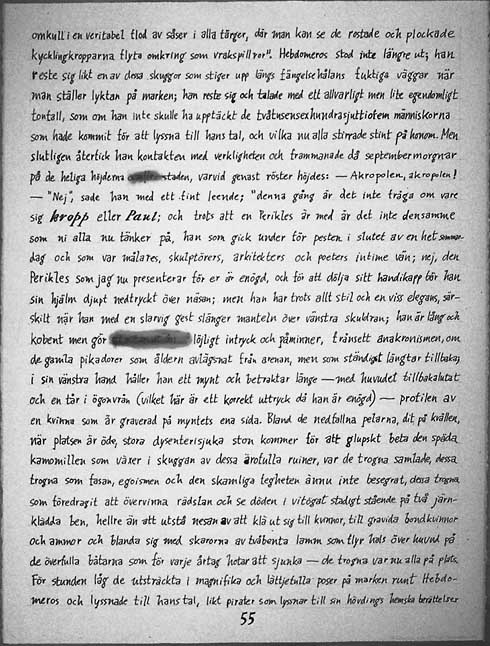 omkull i en veritabel flod av såser i alla färger, där man kan se de rostade och plockade
kycklingkropparna flyta omkring som vrakspillror". Hebdomeros stod inte längre ut; han
reste sig likt en av dessa skuggor som stiger upp längs fängelsehålans fuktiga väggar när
man ställer lyktan på marken; han reste sig och talade med ett allvarligt men lite egendomligt
tonfall, som om han inte skulle ha upptäckt de tvåtusensexhundrasjuttiofem människorna
som hade kommit för att lyssna till hans tal, och vilka nu alla stirrade stint på honom. Men
slutligen återfick han kontakten med verkligheten och frammanade då septembermorgnar
på de heliga höjderna staden, varvid genast röster höjdes: — Akropolen, akropolen!
— "Nej", sade han med ett fint leende; "denna gång är det inte fråga om vare
sig kropp eller Paul; och trots att en Perikles är med är det inte densamme
som ni alla nu tänker på, han som gick under för pesten i slutet av en het sommar-
dag och som var målares, skulptörers, arkitekters och poeters intime vän; nej, den
Perikles som jag nu presenterar för er är enögd, och för att dölja sitt handikapp bär han
sin hjälm djupt nedtryckt över näsan; men han har trots allt stil och en viss elegans, sär-
skilt när han med en slarvig gest slänger manteln över vänstra skuldran; han är lång och
kobent men gör löjligt intryck och påminner, frånsett anakronismen, om
de gamla pikadorer som åldern avlägsnat från arenan, men som ständigt längtar tillbaka;
i sin vänstra hand håller han ett mynt och betraktar länge — med huvudet tillbakalutat
och en tår i ögonvrån (vilket här är ett korrekt uttryck då han är enögd) — profilen av
en kvinna som är graverad på myntets ena sida. Bland de nedfallna pelarna, dit på kvällen,
när platsen är öde, stora dysenterisjuka ston kommer för att glupskt beta den späda
kamomillen som växer i skuggan av dessa ärofulla ruiner, var de trogna samlade, dessa
trogna som fasan, egoismen och den skamliga fegheten ännu inte besegrat, dessa trogna
som föredragit att övervinna rädslan och se döden i vitögat stadigt stående på två järn-
klädda ben, hellre än att utstå nesan av att klä ut sig till kvinnor, till gravida bondkvinnor
och ammor och blanda sig med skarorna av tvåbenta lamm som flyr hals över huvud på
de överfulla båtarna som för varje årtag hotar att sjunka — de trogna var nu alla på plats.
För stunden låg de utsträckta i magnifika och lättjefulla poser på marken runt Hebdo-
meros och lyssnade till hans tal, likt pirater som lyssnar till sin hövdings hemska berättelser
55